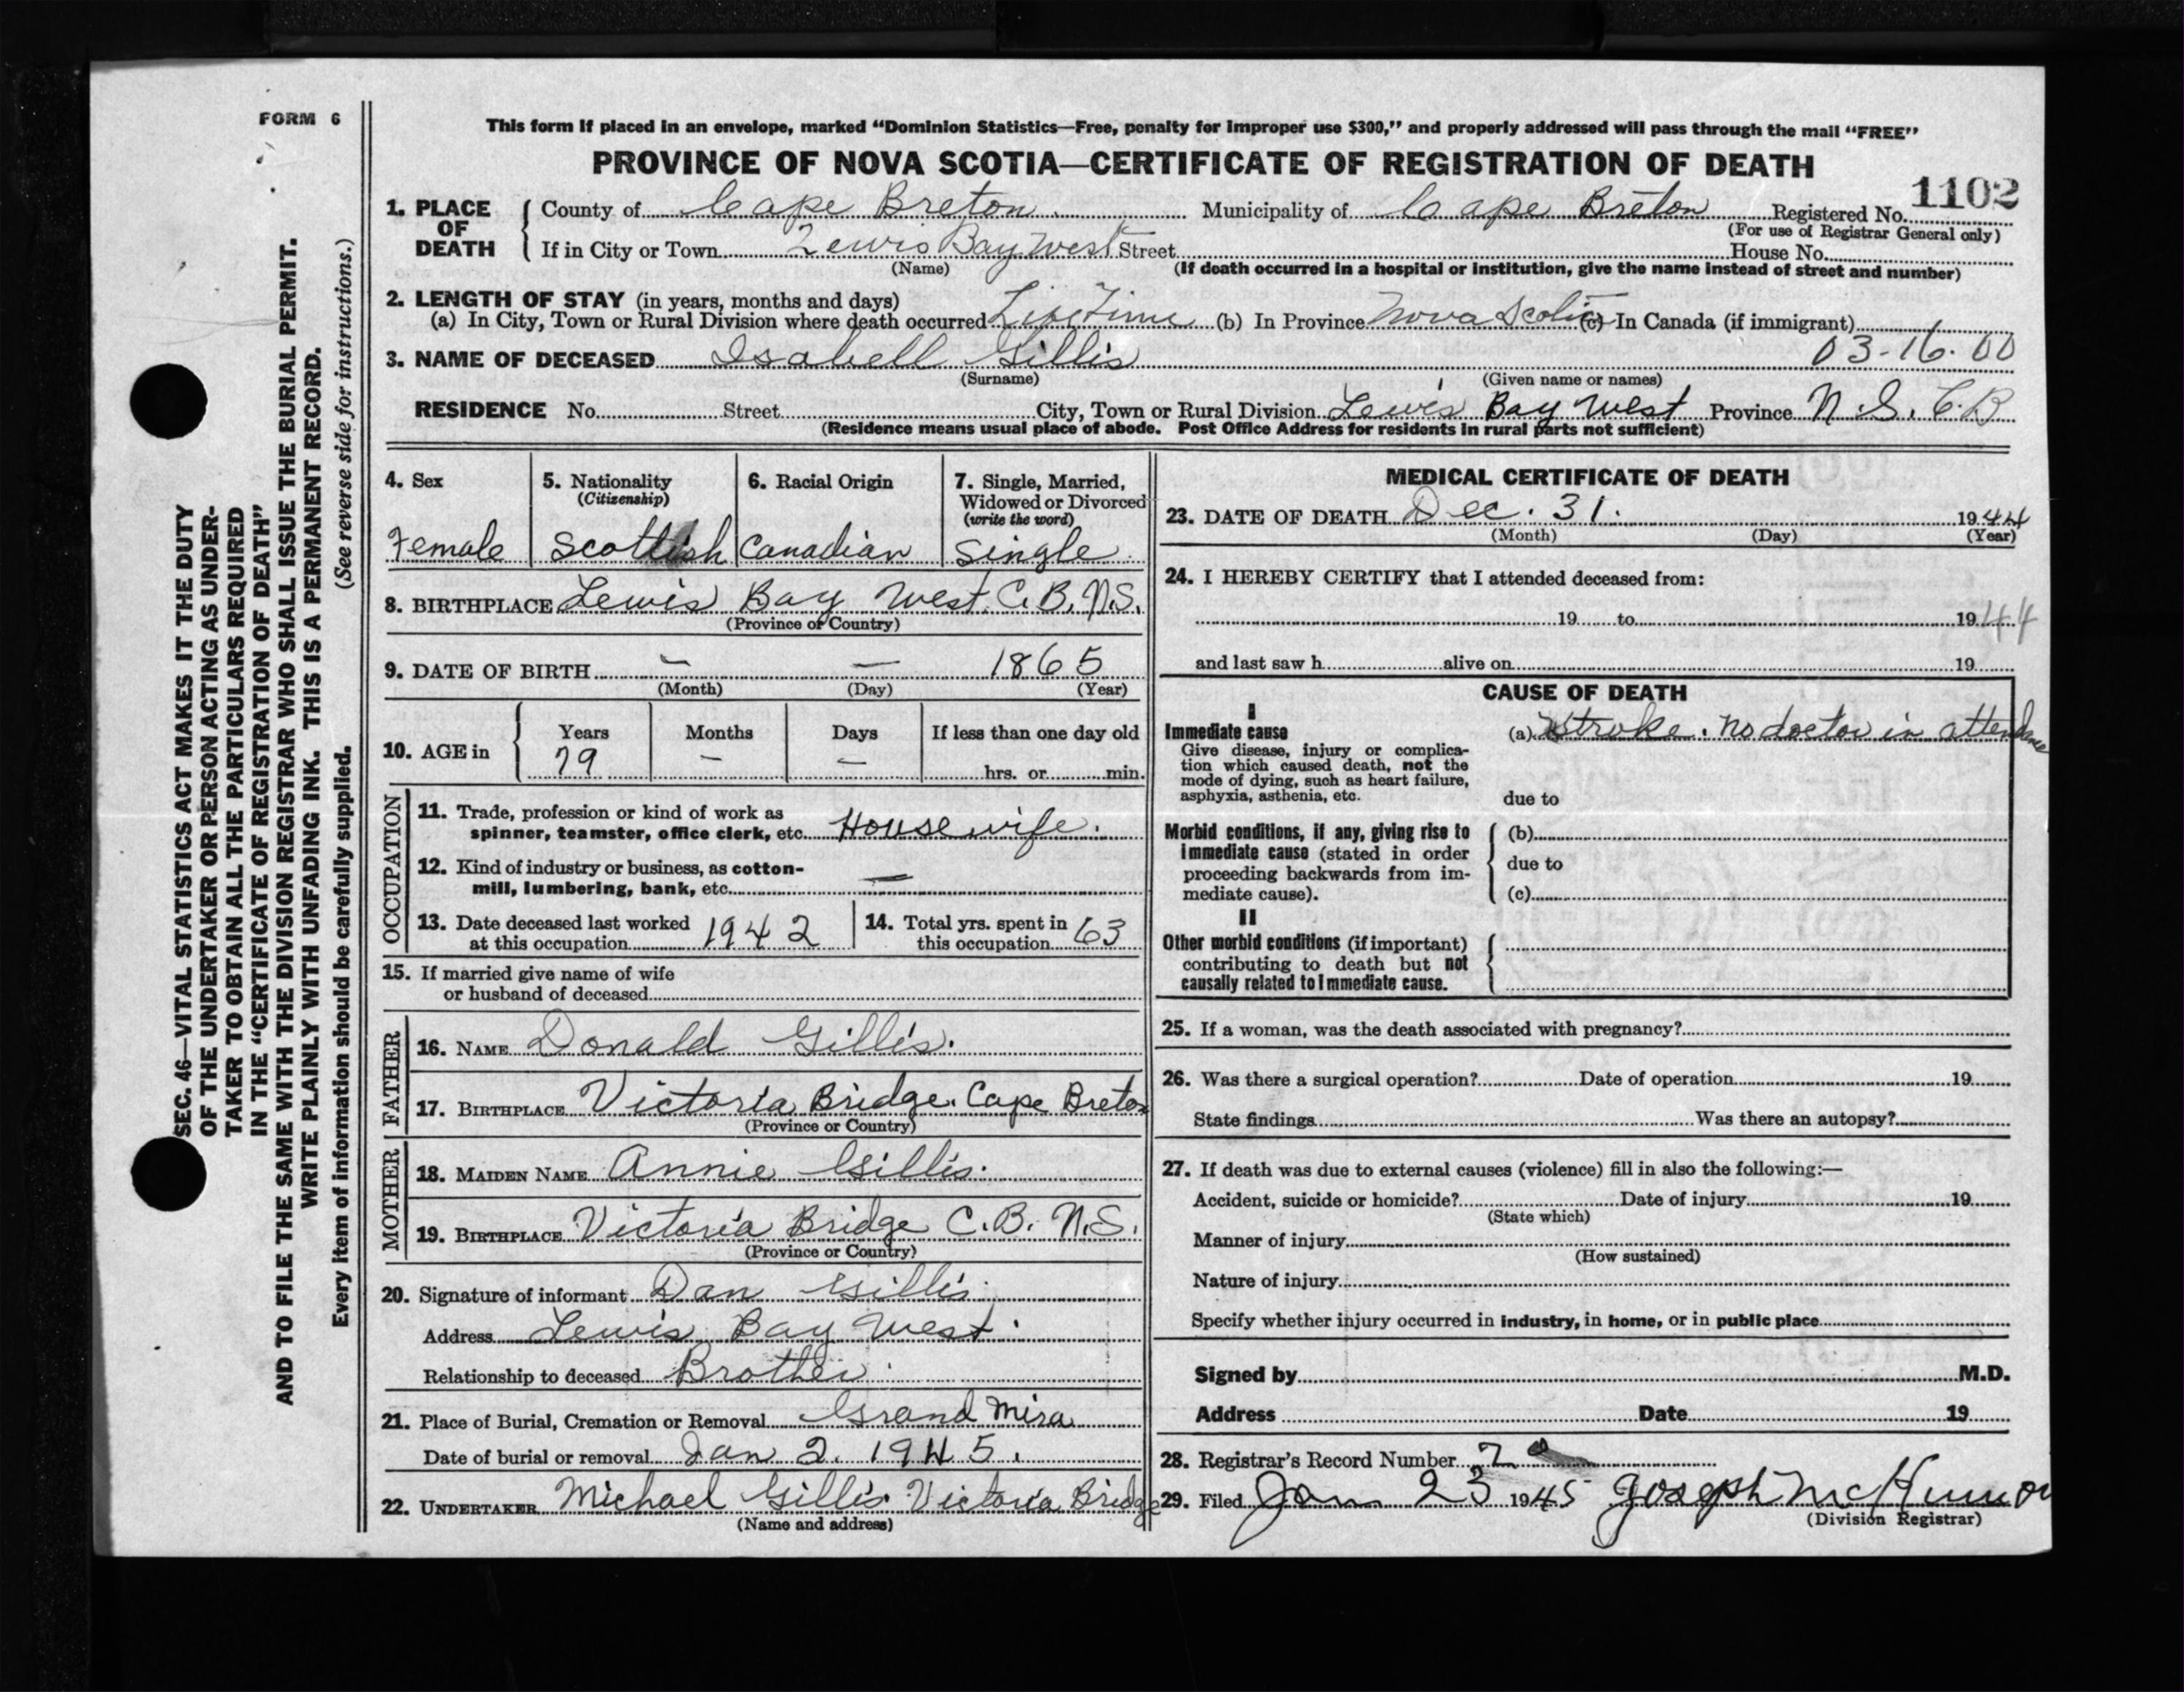 FORM 6
SEC. 46—VITAL STATISTICS ACT MAKES IT THE DUTY
OF THE UNDERTAKER OR PERSON ACTING AS UNDER-
TAKER TO OBTAIN ALL THE PARTICULARS REQUIRED
IN THE "CERTIFICATE OF REGISTRATION OF DEATH"
AND TO FILE THE SAME WITH THE DIVISION REGISTRAR WHO SHALL ISSUE THE BURIAL PERMIT.
WRITE PLAINLY WITH UNFADING INK. THIS IS A PERMANENT RECORD.
Every item of information should be carefully supplied. (See reverse side for instructions.)
This form if placed in an envelope, marked "Dominion Statistics—Free, penalty for improper use $300," and properly addressed will pass through the mail "FREE"
PROVINCE OF NOVA SCOTIA—CERTIFICATE OF REGISTRATION OF DEATH
1102
1. PLACE OF DEATH { County of Cape Breton Municipality of Cape Breton Registered No.
(For use of Registrar General only)
If in City or Town Lewis Bay West Street House No.
(Name) (If death occurred in a hospital or institution, give the name instead of street and number)
2. LENGTH OF STAY (in years, months and days)
(a) In City, Town or Rural Division where death occurred Life Time (b) In Province Nova Scotia (c) In Canada (if immigrant)
3. NAME OF DECEASED Isabell Gillis 03-16.00
(Surname) (Given name or names)
RESIDENCE No. Street City, Town or Rural Division Lewis Bay West Province N.S. C.B
(Residence means usual place of abode. Post Office Address for residents in rural parts not sufficient)
4. Sex
Female
5. Nationality
(Citizenship)
Scottish
6. Racial Origin
Canadian
7. Single, Married,
Widowed or Divorced
(write the word)
Single
8. BIRTHPLACE Lewis Bay West C.B. N.S.
(Province or Country)
9. DATE OF BIRTH — — 1865
(Month) (Day) (Year)
10. AGE in { Years Months Days If less than one day old
79 — — hrs. or min.
OCCUPATION
11. Trade, profession or kind of work as
spinner, teamster, office clerk, etc. Housewife.
12. Kind of industry or business, as cotton-
mill, lumbering, bank, etc. —
13. Date deceased last worked
at this occupation 1942
14. Total yrs. spent in
this occupation 63
15. If married give name of wife
or husband of deceased
FATHER
16. NAME Donald Gillis.
17. BIRTHPLACE Victoria Bridge. Cape Breton
(Province or Country)
MOTHER
18. MAIDEN NAME Annie Gillis.
19. BIRTHPLACE Victoria Bridge C.B. N.S.
(Province or Country)
20. Signature of informant Dan Gillis
Address Lewis Bay West.
Relationship to deceased Brother
21. Place of Burial, Cremation or Removal Grand Mira
Date of burial or removal Jan 2. 1945.
22. UNDERTAKER Michael Gillis. Victoria Bridge
(Name and address)
MEDICAL CERTIFICATE OF DEATH
23. DATE OF DEATH Dec. 31. 1944
(Month) (Day) (Year)
24. I HEREBY CERTIFY that I attended deceased from:
19 to 1944
and last saw h alive on 19
CAUSE OF DEATH
I
Immediate cause (a) Stroke. No doctor in attendence
Give disease, injury or complica-
tion which caused death, not the
mode of dying, such as heart failure,
asphyxia, asthenia, etc.
due to
Morbid conditions, if any, giving rise to { (b)
immediate cause (stated in order
proceeding backwards from im- due to
mediate cause). (c)
II
Other morbid conditions (if important)
contributing to death but not
causally related to immediate cause.
25. If a woman, was the death associated with pregnancy?
26. Was there a surgical operation? Date of operation 19
State findings Was there an autopsy?
27. If death was due to external causes (violence) fill in also the following:—
Accident, suicide or homicide? Date of injury 19
(State which)
Manner of injury
(How sustained)
Nature of injury
Specify whether injury occurred in industry, in home, or in public place
Signed by M.D.
Address Date 19
28. Registrar's Record Number 7
29. Filed Jan 23 1945 Joseph McKinnon
(Division Registrar)